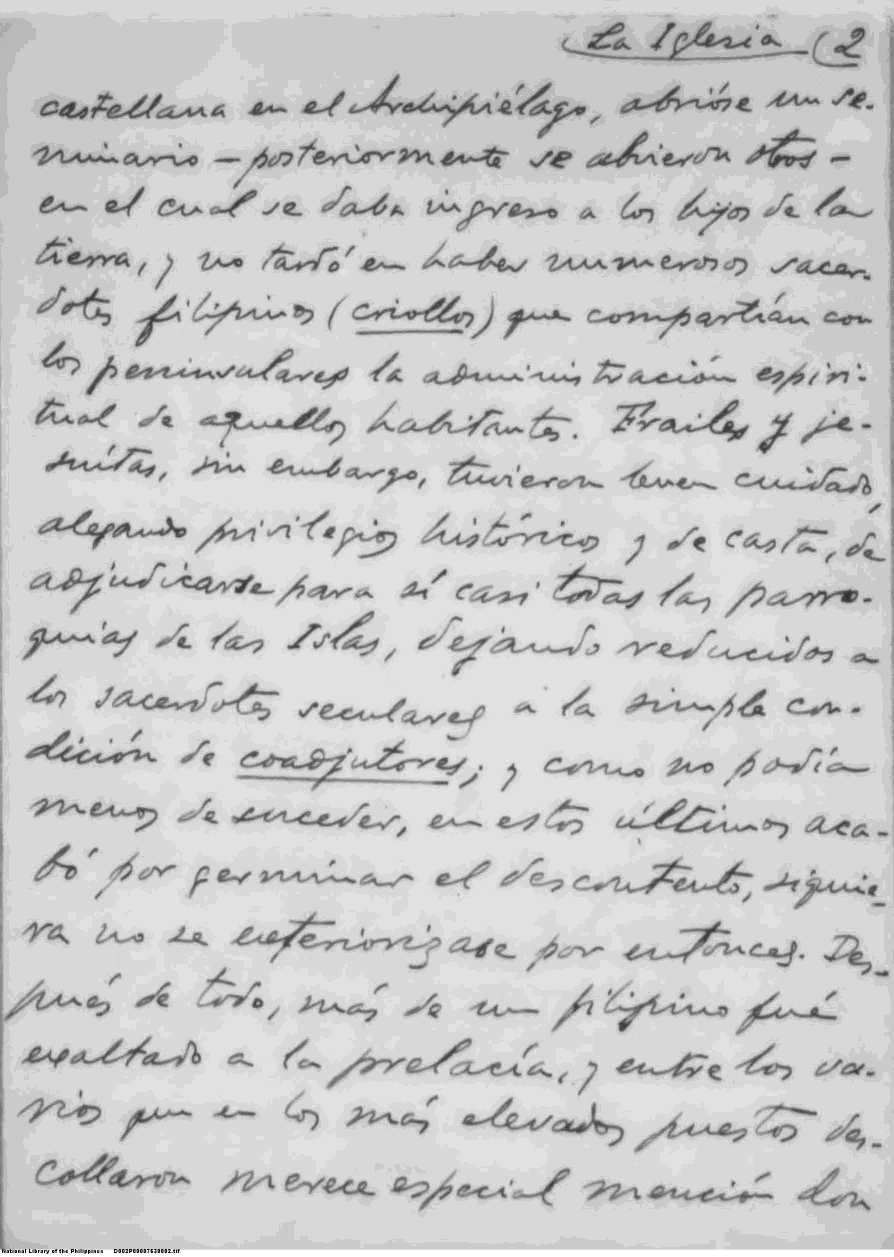 La Iglesia (2
castellana en el Archipiélago, abrióse un se-
minario — posteriormente se abrieron otros —
en el cual se daba ingreso a los hijos de la
tierra, y no tardó en haber numerosos sacer-
dotes filipinos (criollos) que compartían con
los peninsulares la administración espiri-
tual de aquellos habitantes. Frailes y je-
suítas, sin embargo, tuvieron buen cuidado,
alegando privilegios históricos y de casta, de
adjudicarse para sí casi todas las parro-
quias de las Islas, dejando reducidos a
los sacerdotes seculares a la simple con-
dición de coadjutores; y como no podía
menos de suceder, en estos últimos aca-
bó por germinar el descontento, siquie-
ra no se exteriorizase por entonces. Des-
pués de todo, más de un filipino fué
exaltado a la prelacía, y entre los va-
rios que en los más elevados puestos des-
collaron merece especial mención don
National Library of the Philippines D002P00007630002.tif